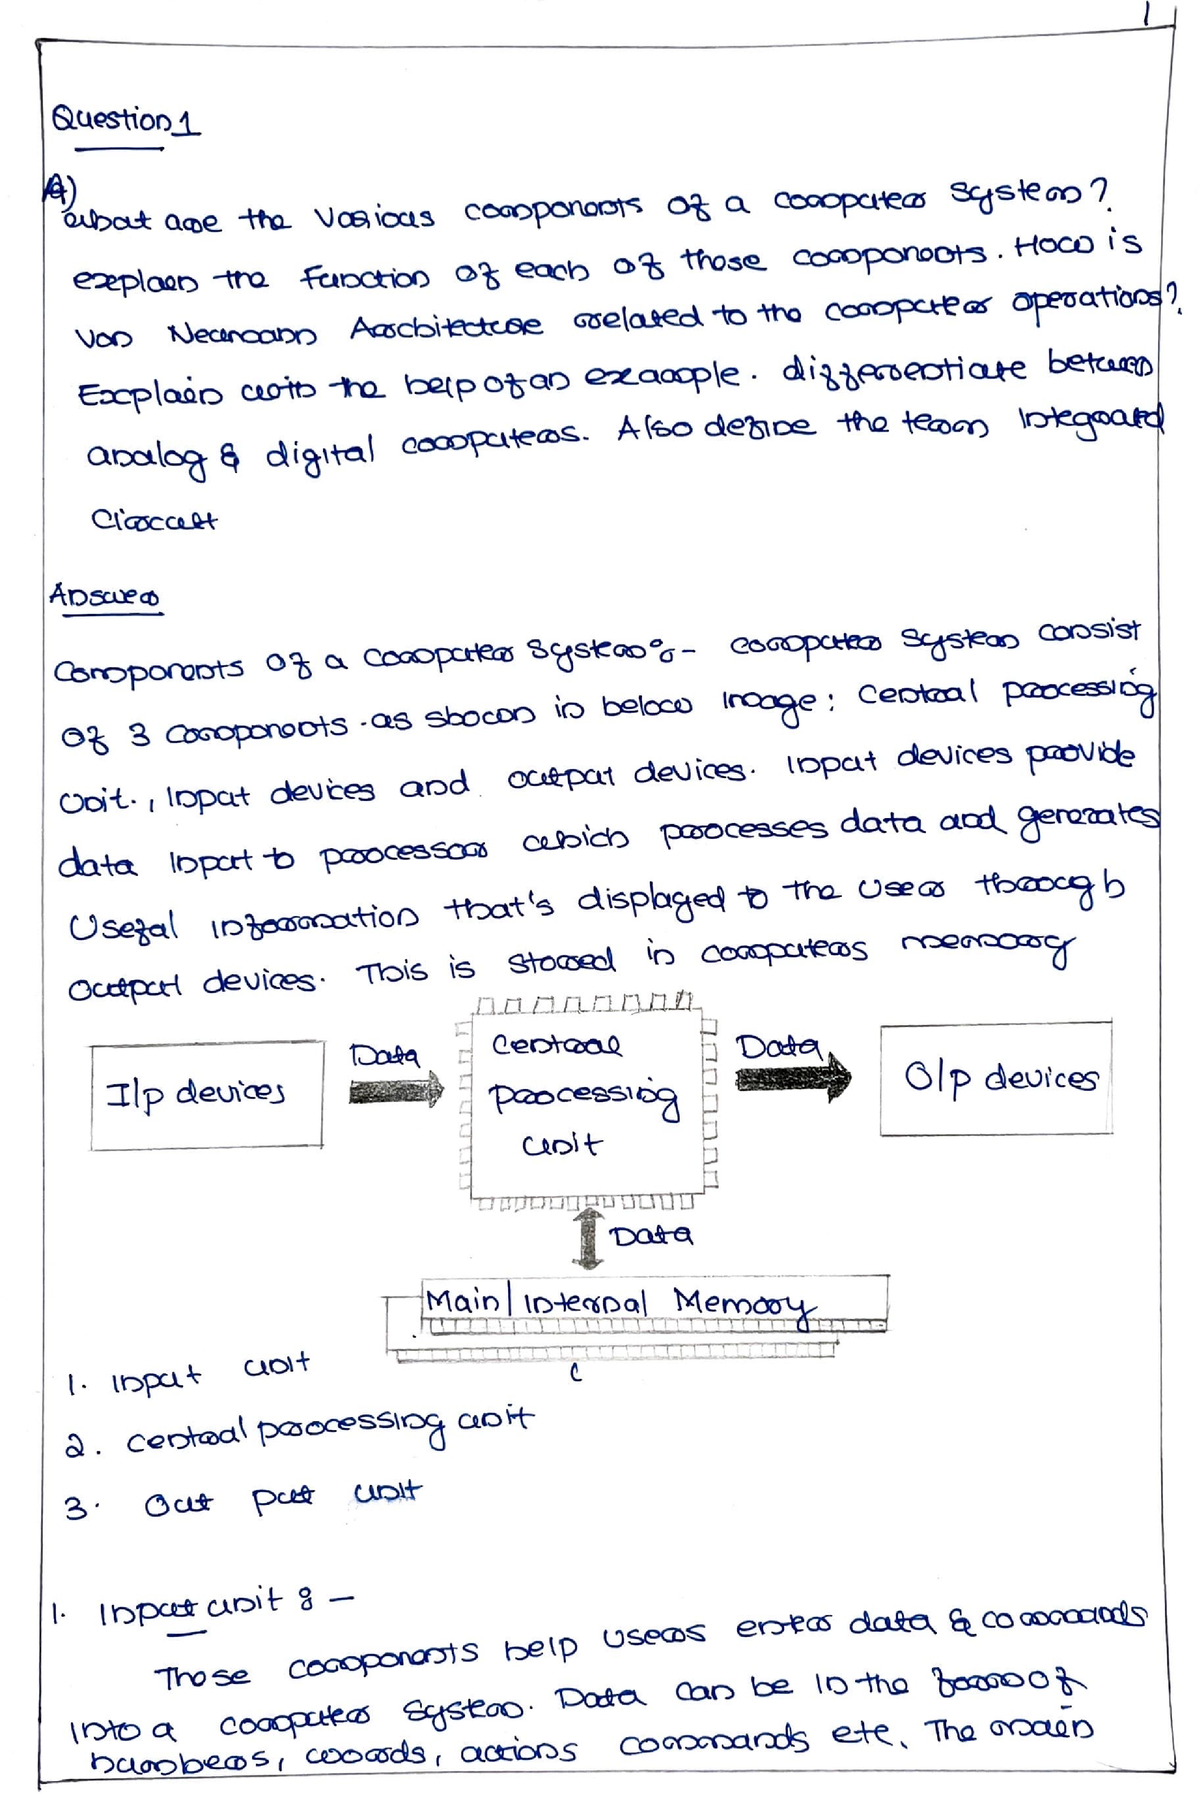 1
Question 1
A)
What are the Various components of a computer system?
explain the function of each of those components. How is
Von Neumann Architecture related to the computer operations?
Explain with the help of an example. differentiate between
analog & digital computers. Also define the term Integrated
Circuit
Answer
Components of a computer system:- computer system consist
of 3 components. as shown in below image: Central processing
Unit., Input devices and output devices. Input devices provide
data Input to processor which processes data and generates
Useful information that's displayed to the user through
output devices. This is stored in computers memory
I/p devices
Data
Central
Processing
Unit
Data
O/p devices
Data
Main/Internal Memory
1. Input unit
2. Central processing unit
3. Out put unit
1. Input unit :-
Those components help users enter data & commands
Into a computer system. Data can be in the form of
numbers, words, actions commands etc. The main